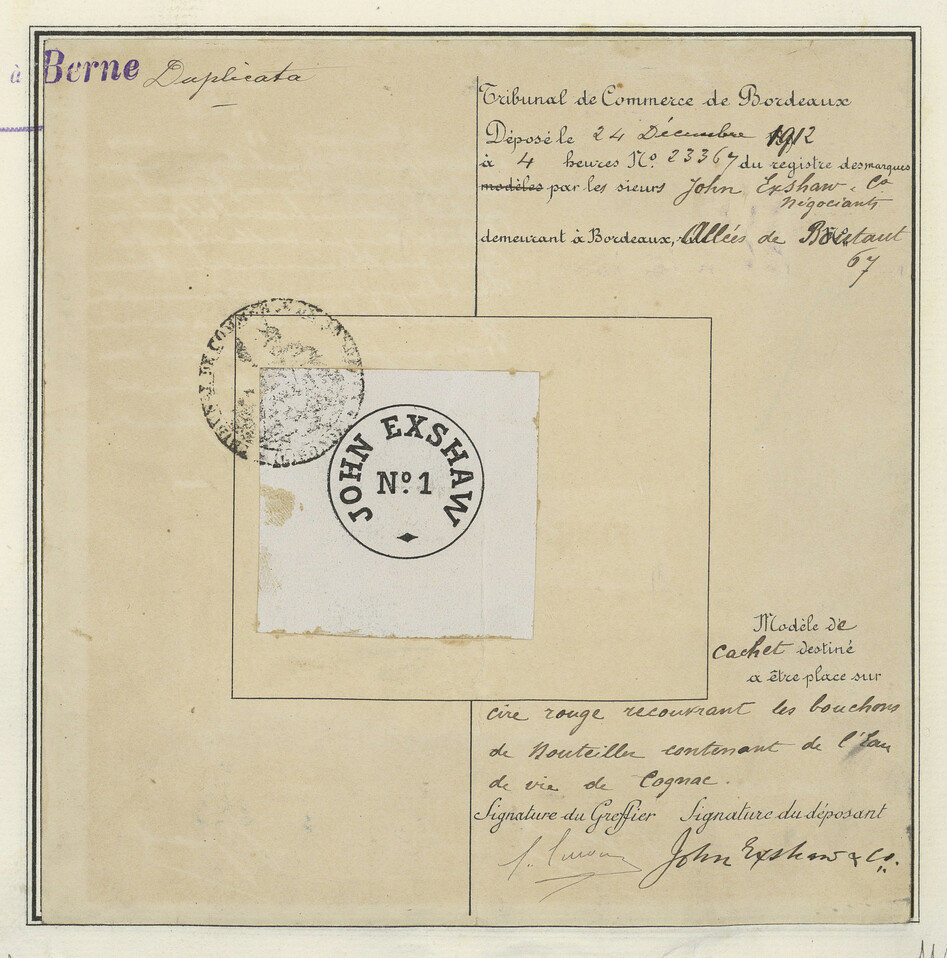 à Berne
Duplicata
Tribunal de Commerce de Bordeaux
Déposé le 24 Décembre 1912
à 4 heures No. 23367 du registre des marques
modèles par les sieurs John Exshaw & Co
Négociants
demeurant à Bordeaux, Allées de Boutaut
67
TRIBUNAL DE COMMERCE DE BORDEAUX
JOHN EXSHAW
No. 1
Modèle de
cachet destiné
a être place sur
cire rouge recouvrant les bouchons
de Bouteilles contenant de l'Eau
de vie de Cognac.
Signature du Greffier Signature du déposant
John Exshaw & Co.